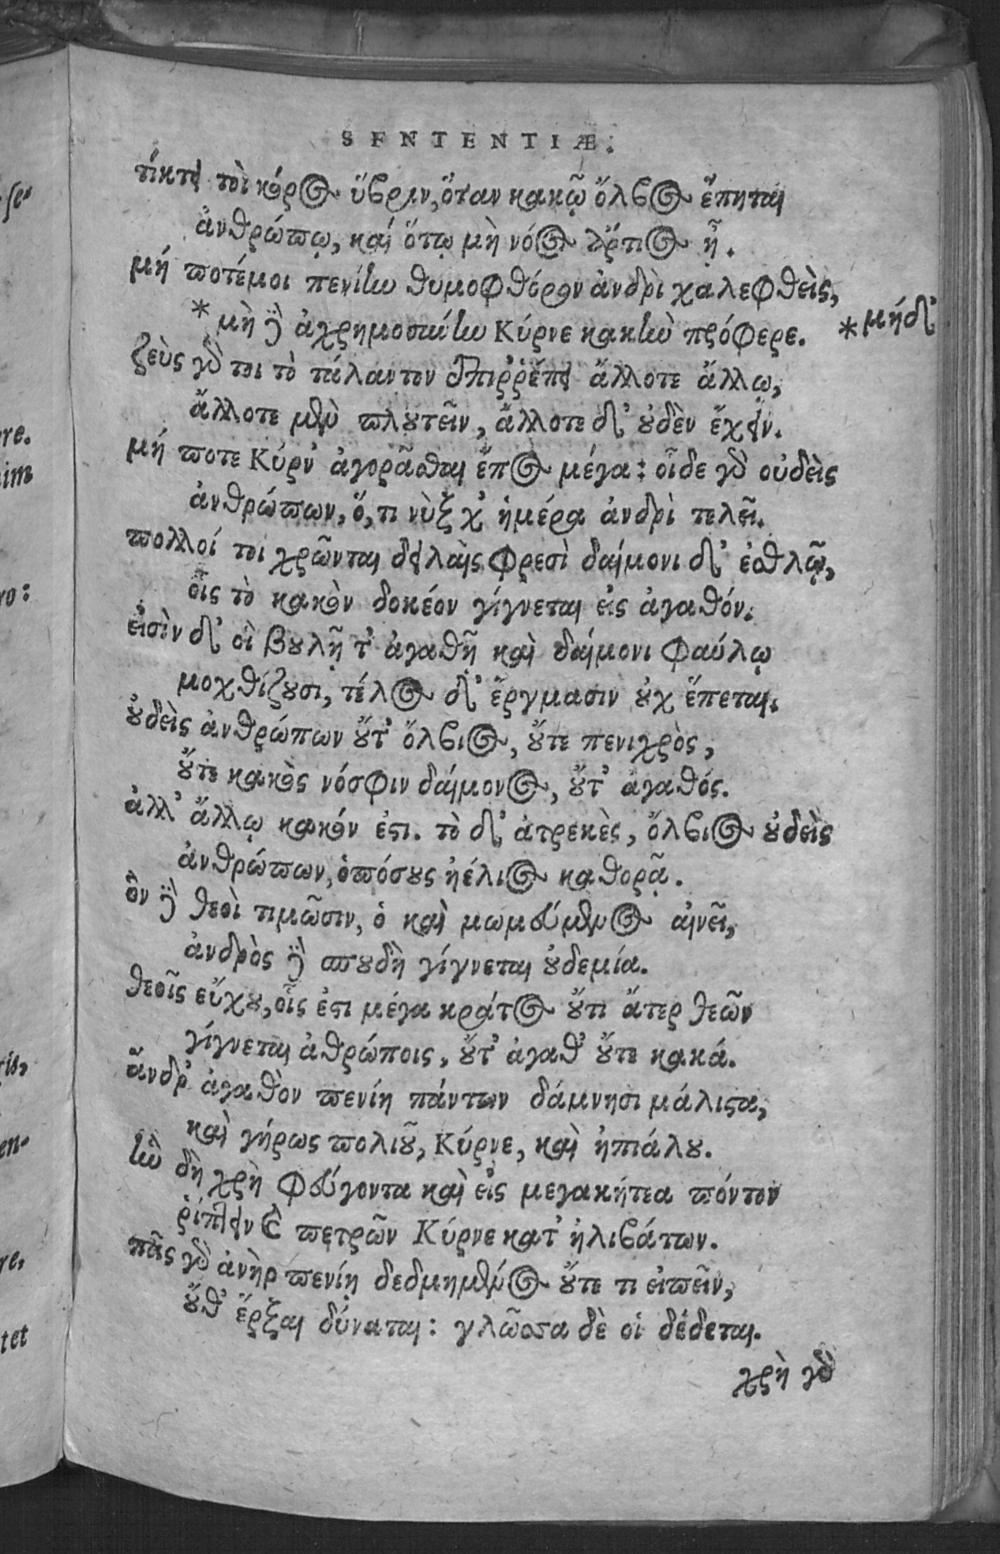 SENTENTIÆ.
τίκτει τοι κόρος ὕβριν, ὅταν κακῷ ὄλβος ἕπηται
ἀνθρώπῳ, καί ὅτῳ μὴ νόος ἄρτιος ᾖ.
μή ποτέ μοι πενίην θυμοφθόρον ἀνδρὶ χαλεφθεὶς,
* μὴ δὲ ἀχρημοσύνην Κύρνε κακὴν πρόφερε. * μήδ'
ζεὺς γάρ τοι τὸ τάλαντον ἐπιῤῥέπει ἄλλοτε ἄλλω,
ἄλλοτε μὲν πλουτεῖν, ἄλλοτε δ' οὐδὲν ἔχειν.
μή ποτε Κύρν' ἀγορᾶσθαι ἔπος μέγα: οἶδε γὰρ οὐδεὶς
ἀνθρώπων, ὅ, τι νὺξ χ' ἡμέρα ἀνδρὶ τελεῖ.
πολλοί τοι χρῶνται δειλαῖς φρεσὶ δαίμονι δ' ἐσθλῷ,
οἷς τὸ κακὸν δοκέον γίγνεται εἰς ἀγαθόν.
εἰσὶν δ' οἳ βουλῇ τ' ἀγαθῇ καὶ δαίμονι φαύλῳ
μοχθίζουσι, τέλος δ' ἔργμασιν οὐχ ἕπεται.
οὐδεὶς ἀνθρώπων οὔτ' ὄλβιος, οὔτε πενιχρὸς,
οὔτε κακὸς νόσφιν δαίμονος, οὔτ' ἀγαθός.
ἀλλ' ἄλλῳ κακόν ἐστι. τὸ δ' ἀτρεκὲς, ὄλβιος οὐδεὶς
ἀνθρώπων, ὁπόσους ἠέλιος καθορᾷ.
ὃν δὲ θεοὶ τιμῶσιν, ὁ καὶ μωμεύμενος αἰνεῖ,
ἀνδρὸς δὲ σπουδὴ γίγνεται οὐδεμία.
θεοῖς εὔχου, οἷς ἐστι μέγα κράτος οὔτι ἄτερ θεῶν
γίγνεται ἀθρώποις, οὔτ' ἀγαθ' οὔτε κακά.
ἄνδρ' ἀγαθὸν πενίη πάντων δάμνησι μάλιστα,
καὶ γήρως πολιοῦ, Κύρνε, καὶ ἠπιάλου.
ἣν δὴ χρὴ φεύγοντα καὶ εἰς μεγακήτεα πόντον
ῥίπτειν καὶ πετρῶν Κύρνε κατ' ἠλιβάτων.
πᾶς γὰρ ἀνὴρ πενίῃ δεδμημένος οὔτε τι εἰπεῖν,
οὔθ' ἔρξαι δύναται: γλῶσσα δὲ οἱ δέδεται.
χρὴ γὰρ